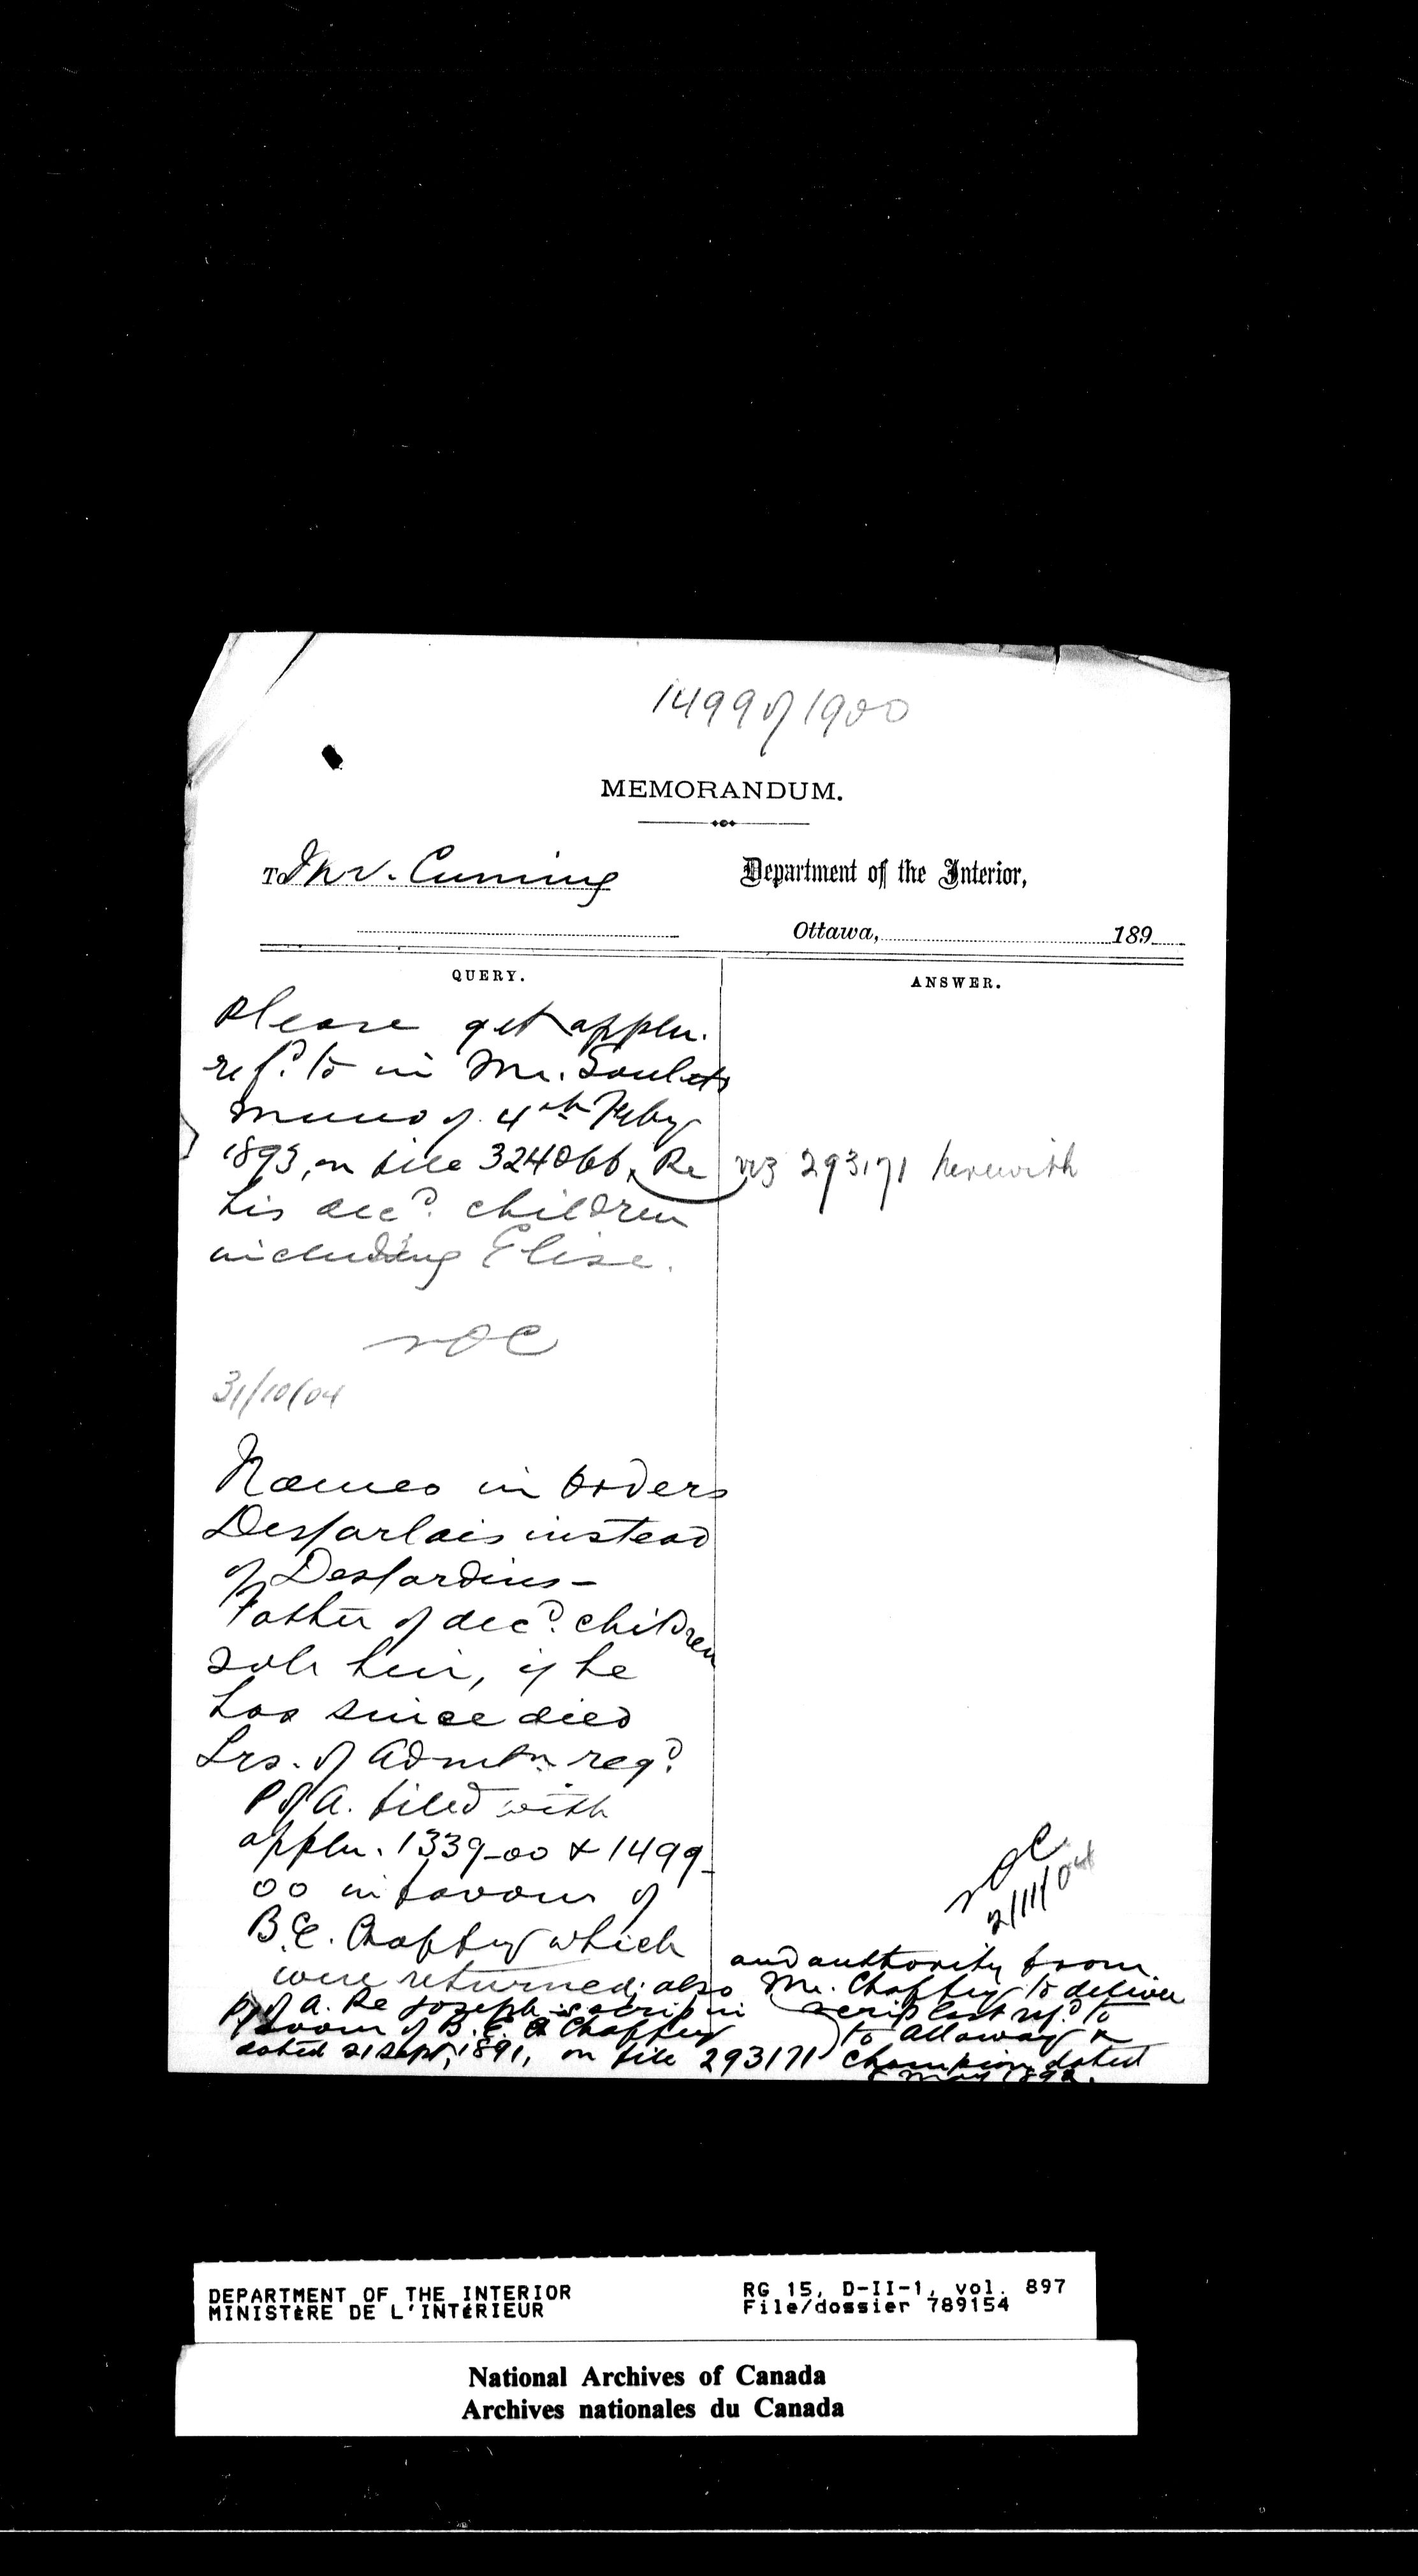 1499 of 1900
MEMORANDUM.
To Mr. Cuming
Department of the Interior,
Ottawa, 189
QUERY.
ANSWER.
Please get appln.
ref.d to in Mr. Goulets
memo of 4th Feby
1893, on file 324066, Re
his dec.d children
including Elise.
viz 293171 herewith
NOC
31/10/04
Names in orders
Desjarlais instead
of Desjardins -
Father of dec.d children
sole heir, if he
has since died
Lrs. of Admtn. req.d
P of A. filed with
appln. 1339-00 & 1499-
00 in favour of
B.E. Chaffey which
were returned; also
P of A. Re Joseph's scrip in
favour of B. E. Chaffey
dated 21 Sept, 1891, on file 293171
NOC
2/11/04
and authority from
Mr. Chaffey to deliver
scrip last ref.d to
to Alloway &
Champion dated
May 1892.
DEPARTMENT OF THE INTERIOR
MINISTÈRE DE L'INTÉRIEUR
RG 15, D-II-1, vol. 897
File/dossier 789154
National Archives of Canada
Archives nationales du Canada